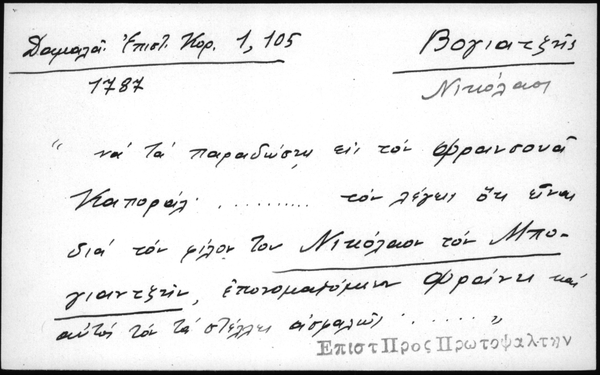 Δαμαλᾶ. Ἐπιστ. Κορ. 1, 105
Βογιατζῆς
1787
Νικόλαος
" νά τά παραδώσῃς εἰς τόν Φρανσουᾶ
Καποράλ. .......... τόν λέγεις ὅτι εἶναι
διά τόν φίλον του Νικόλαον τόν Μπο-
γιαντζῆν, ἐπονομαζόμενον Φράϊνκ καί
αὐτός τόν τά στέλλει ἀσφαλῶς ....... "
Επιστ Προς Πρωτοψαλτην